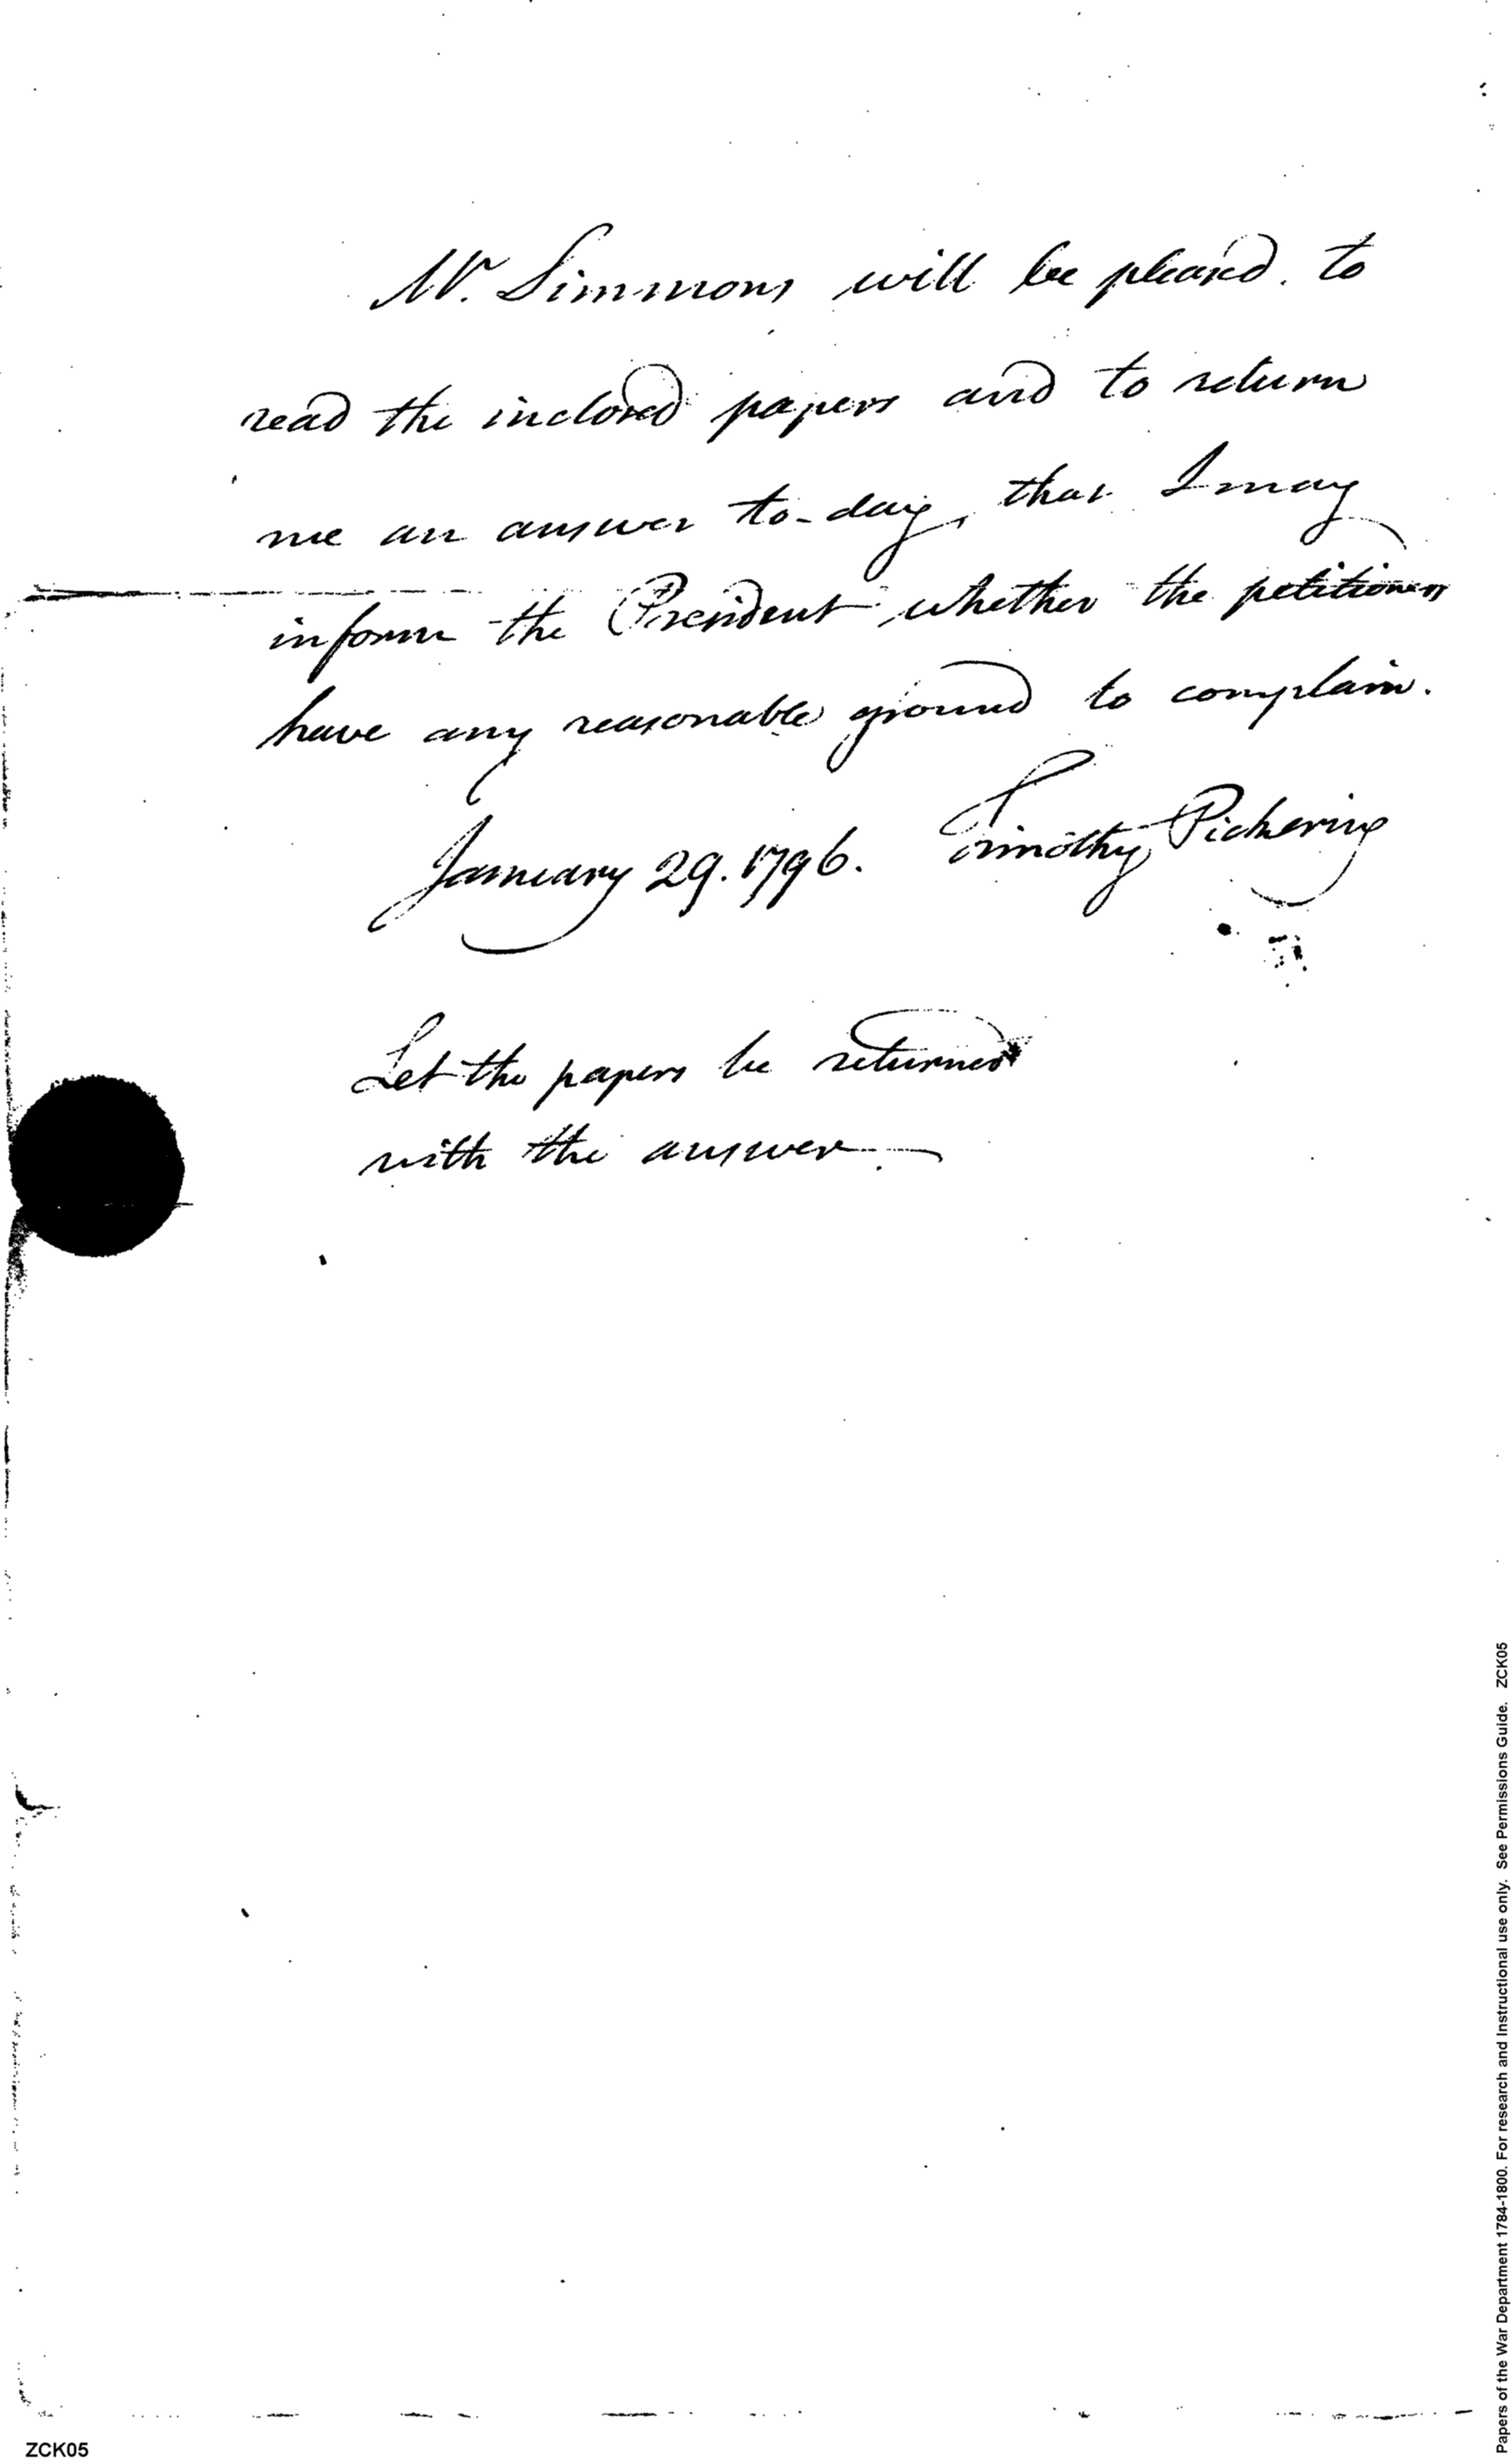 Mr. Simmons will be pleased to
read the inclosed papers and to return
me an answer to-day, that I may
inform the President whether the petitioners
have any reasonable ground to complain.
January 29. 1796. Timothy Pickering
Let the papers be returned
with the answer.
ZCK05
Papers of the War Department 1784-1800. For research and Instructional use only. See Permissions Guide. ZCK05